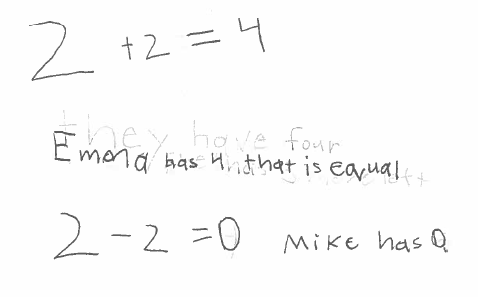 2 +2 = 4
they have four
Emma has 4, that is equal
2 - 2 = 0 Mike has 0